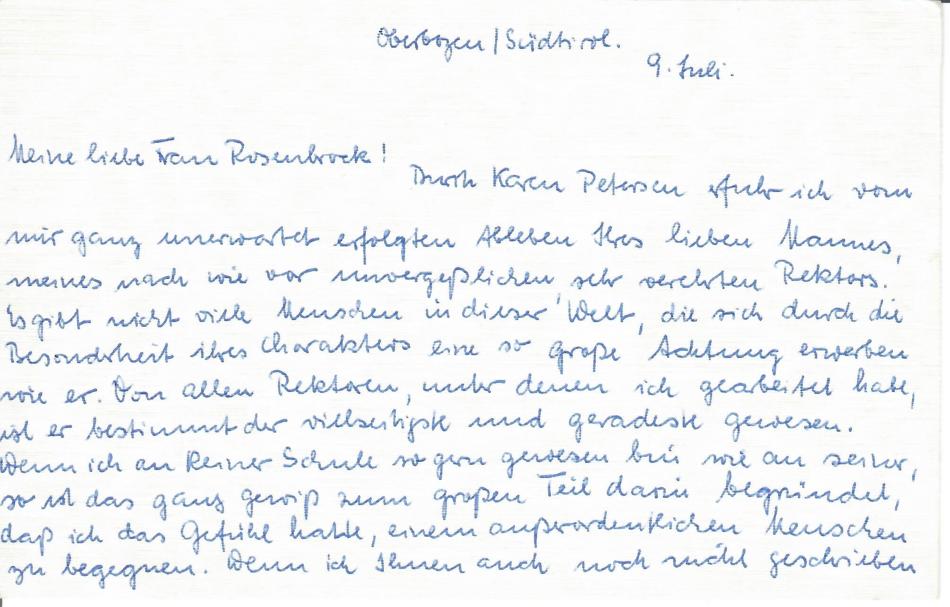 Oberbozen/Südtirol.
9. Juli.
Meine liebe Frau Rosenbrock!
Durch Karen Petersen erfuhr ich vom
mir ganz unerwartet erfolgten Ableben Ihres lieben Mannes,
meines nach wie vor unvergeßlichen, sehr verehrten Rektors.
Es gibt nicht viele Menschen in dieser Welt, die sich durch die
Besonderheit ihres Charakters eine so große Achtung erwerben
wie er. Von allen Rektoren, unter denen ich gearbeitet habe,
ist er bestimmt der vielseitigste und geradeste gewesen.
Wenn ich an keiner Schule so gern gewesen bin wie an seiner,
so ist das ganz gewiß zum großen Teil darin begründet,
daß ich das Gefühl hatte, einem außerordentlichen Menschen
zu begegnen. Wenn ich Ihnen auch noch nicht geschrieben